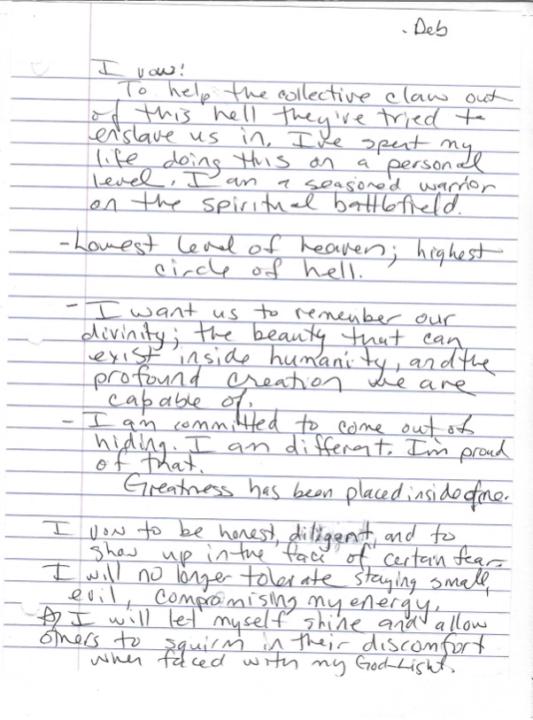 . Deb
I vow!
To help the collective claw out
of this hell they've tried to
enslave us in. I've spent my
life doing this on a personal
level. I am a seasoned warrior
on the spiritual battlefield.
- Lowest level of heaven; highest
circle of hell.
- I want us to remember our
divinity; the beauty that can
exist inside humanity, and the
profound creation we are
capable of.
- I am committed to come out of
hiding. I am different. I'm proud
of that.
Greatness has been placed inside of me.
I vow to be honest, diligent, and to
show up in the face of certain fear.
I will no longer tolerate staying small,
evil, compromising my energy.
I will let myself shine and allow
others to squirm in their discomfort
when faced with my God-Light.